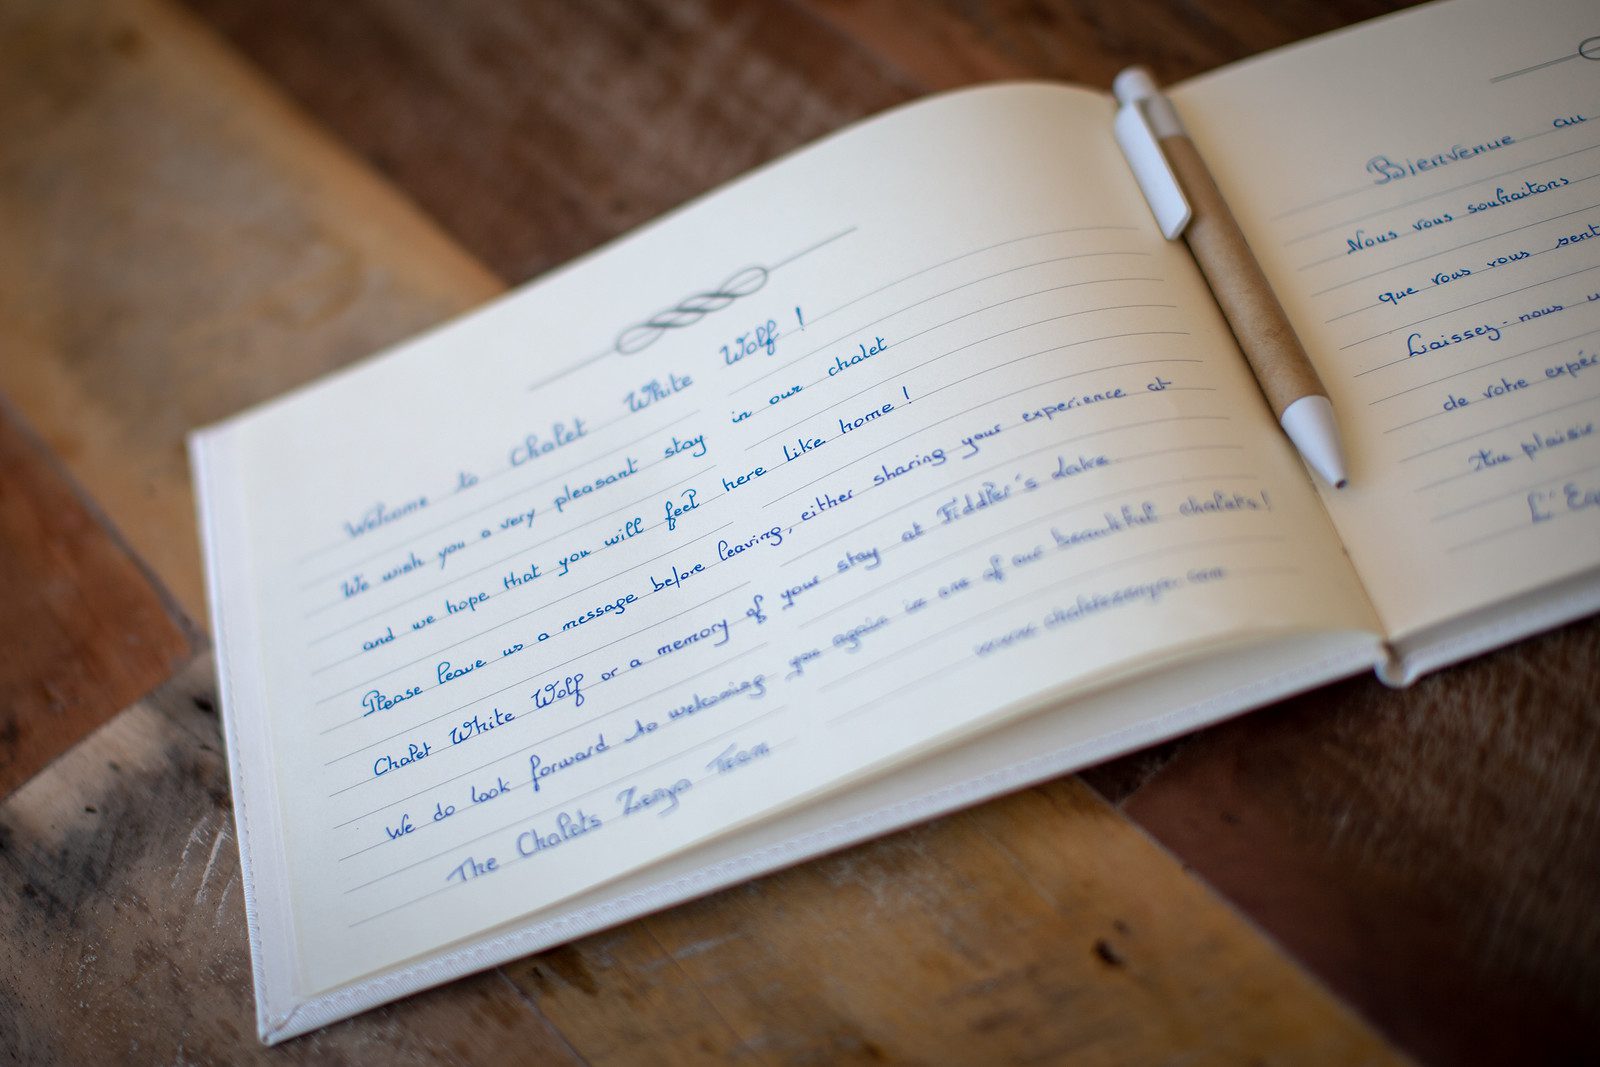 Welcome to Chalet White Wolf !
We wish you a very pleasant stay in our chalet
and we hope that you will feel here like home !
Please leave us a message before leaving, either sharing your experience at
Chalet White Wolf or a memory of your stay at Fiddler's Lake.
We do look forward to welcoming you again in one of our beautiful chalets!
The Chalets Zenya Team
Bienvenue au
Nous vous souhaitons
que vous vous sent
Laissez-nous u
de votre expér
Au plaisir
L'Eq